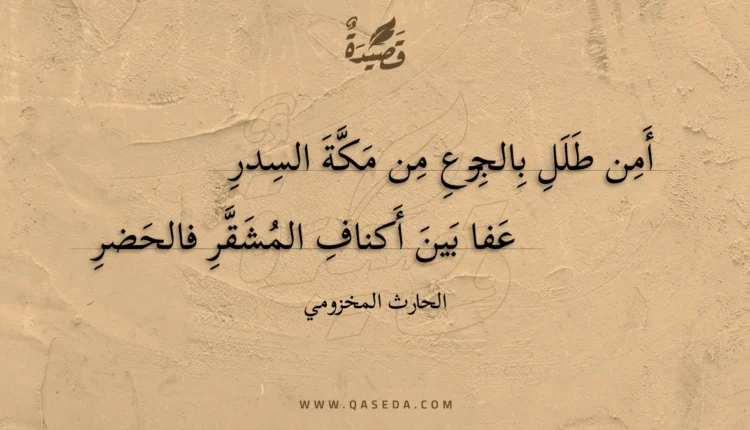 قَصِيدَةٌ
أَمِن طَلَلِ بِالجِزعِ مِن مَكَّةَ السِدرِ
عَفا بَينَ أَكنافِ المُشَقَّرِ فالحَضرِ
الحارث المخزومي
WWW.QASEDA.COM